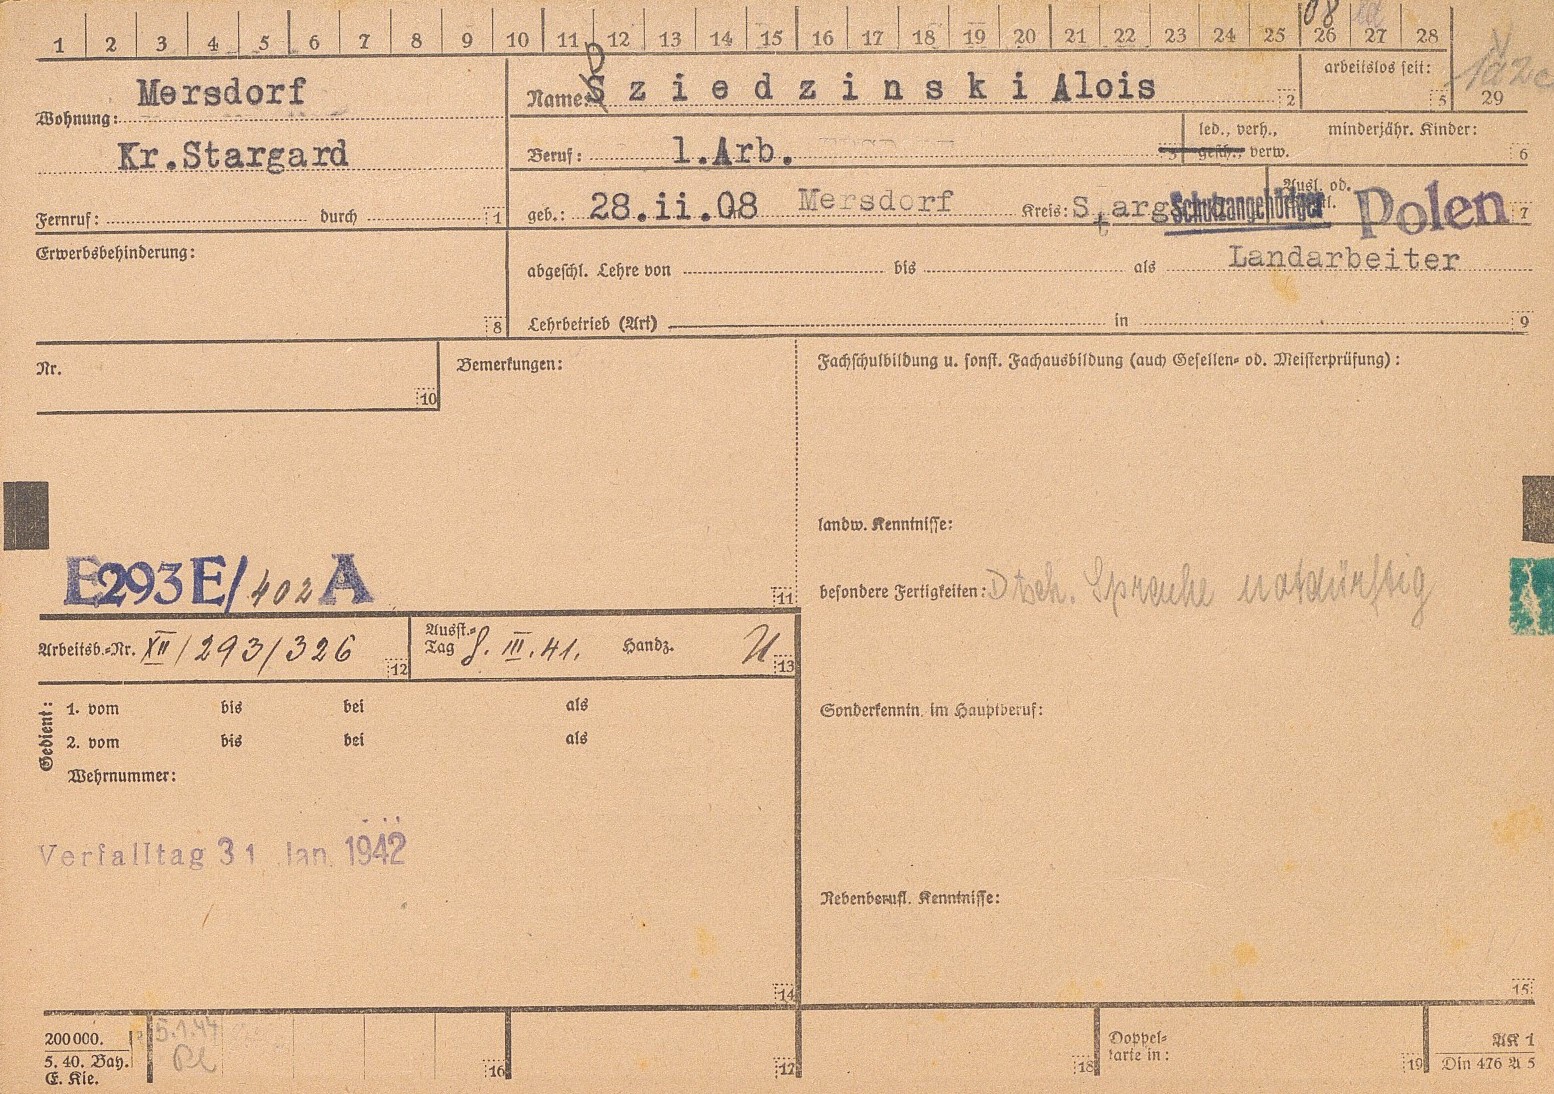 1 2 3 4 5 6 7 8 9 10 11 12 13 14 15 16 17 18 19 20 21 22 23 24 25 26 27 28
08
29
Mersdorf
Wohnung:
Kr.Stargard
Fernruf: durch 1
Name: Dziedzinski Alois 2
arbeitslos seit: 5
Beruf: l.Arb. 3
led., verh., gesch., verw.
minderjähr. Kinder: 6
geb.: 28.ii.08 Mersdorf Kreis: Starg
Schutzangehöriger
Ausl. od.
Polen 7
Erwerbsbehinderung: 8
abgeschl. Lehre von bis als Landarbeiter
Lehrbetrieb (Art) in 9
Nr. 10
Bemerkungen:
Fachschulbildung u. sonst. Fachausbildung (auch Gesellen- od. Meisterprüfung):
landw. Kenntnisse:
E293E/402A 11
besondere Fertigkeiten: Dtsch. Sprache notdürftig
Arbeitsb.-Nr. XII/293/326 12
Ausst.-Tag 8. III. 41. Handz. 13
Gedient:
1. vom bis bei als
2. vom bis bei als
Wehrnummer:
Sonderkenntn. im Hauptberuf:
Verfalltag 31 Jan. 1942
14
Nebenberufl. Kenntnisse:
15
200000.
5. 40. Bay.
E. Kle.
5.1.44
16
17
18
Doppel-
karte in:
19
AK 1
Din 476 A 5